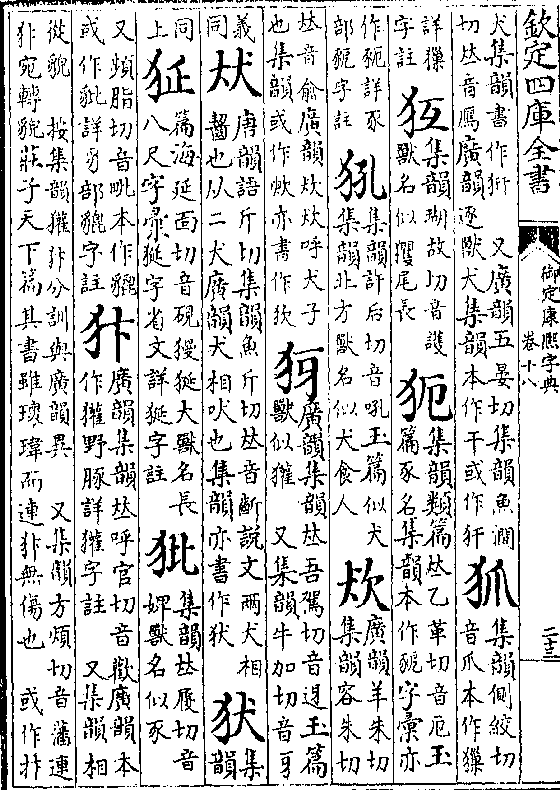 欽定四庫全書
御定康熙字典
卷十八
二十三
犬集韻書作犴 又廣韻五晏切集韻魚澗
切𠀤音鴈廣韻逐獸犬集韻本作干或作犴
集韻側絞切
音爪本作獠
詳獠
字註
集韻瑚故切音護
獸名似玃尾長
集韻類篇𠀤乙革切音厄玉
篇豕名集韻本作豟字彙亦
作豟詳豕
部豟字註
犼
集韻許后切音吼玉篇似犬
集韻北方獸名似犬食人
廣韻羊朱切
集韻容朱切
𠀤音兪廣韻呼犬子
也集韻或作亦書作
犽
廣韻集韻𠀤吾駕切音迓玉篇
獸似獾 又集韻牛加切音牙
義
同
㹜
唐韻語斤切集韻魚斤切𠀤音齗說文兩犬相
齧也从二犬廣韻犬相吠也集韻亦書作
集
韻
同
上
篇海延面切音硯獌狿大獸名長
八尺字彙狿字省文詳狿字註
集韻𠀤履切音
婢獸名似豕
又頻脂切音毗本作貔
或作豼詳豸部貔字註
犿
廣韻集韻𠀤呼官切音歡廣韻本
作獾野豚詳獾字註 又集韻相
從貌 按集韻獾犿分訓與廣韻異 又集韻方煩切音藩連
犿宛轉貌莊子天下篇其書雖瓌瑋而連犿無傷也 或作抃